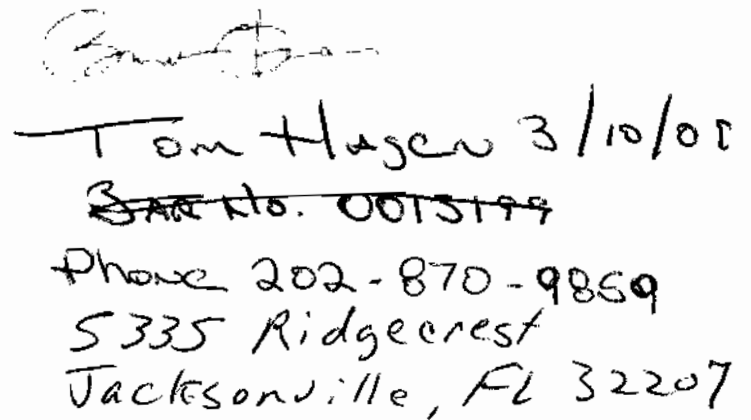 Tom Hagen 3/10/01
Bar No. 0015199
Phone 202-870-9859
5335 Ridgecrest
Jacksonville, FL 32207